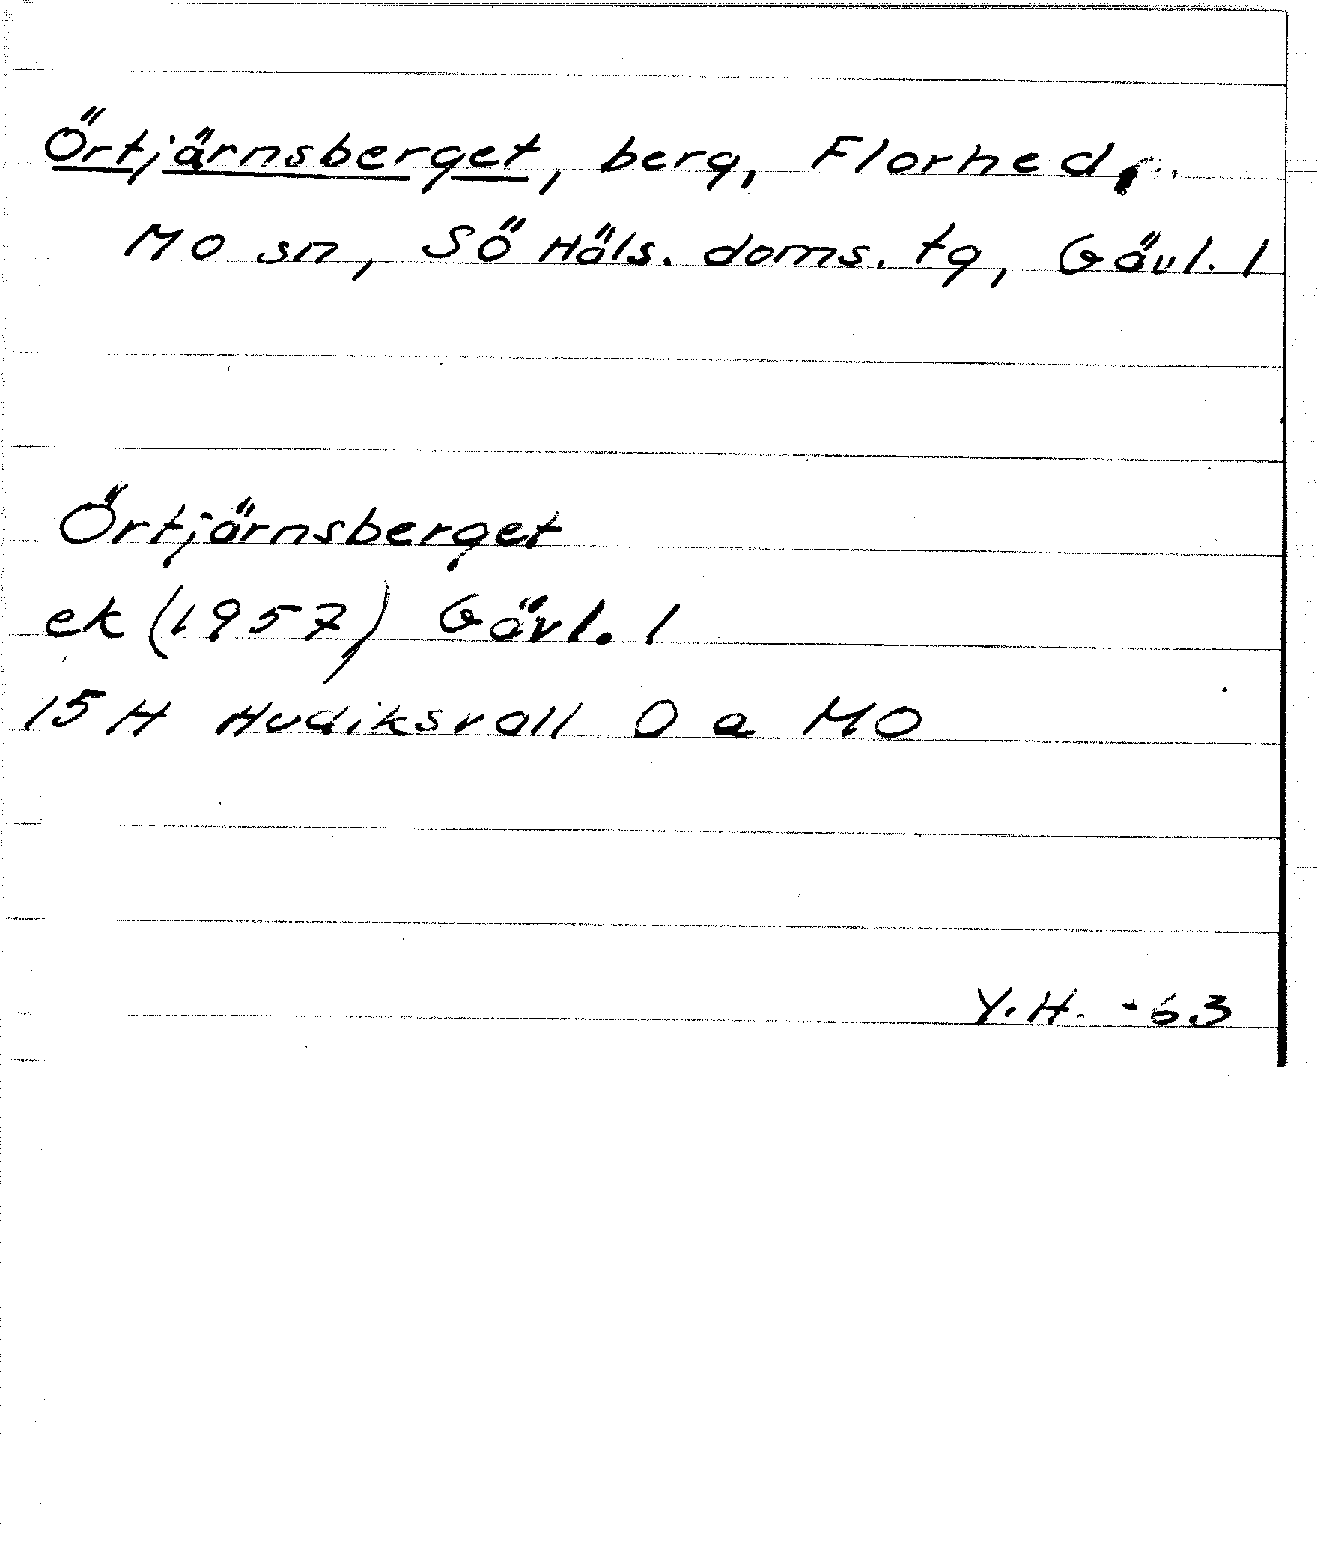 Örtjärnsberget, berg, Florhed,
Mo sn, Sö Häls. doms. tg, Gävl. l
Örtjärnsberget
ek (1957) Gävl. l
15 H Hudiksvall O a MO
Y.H. -63